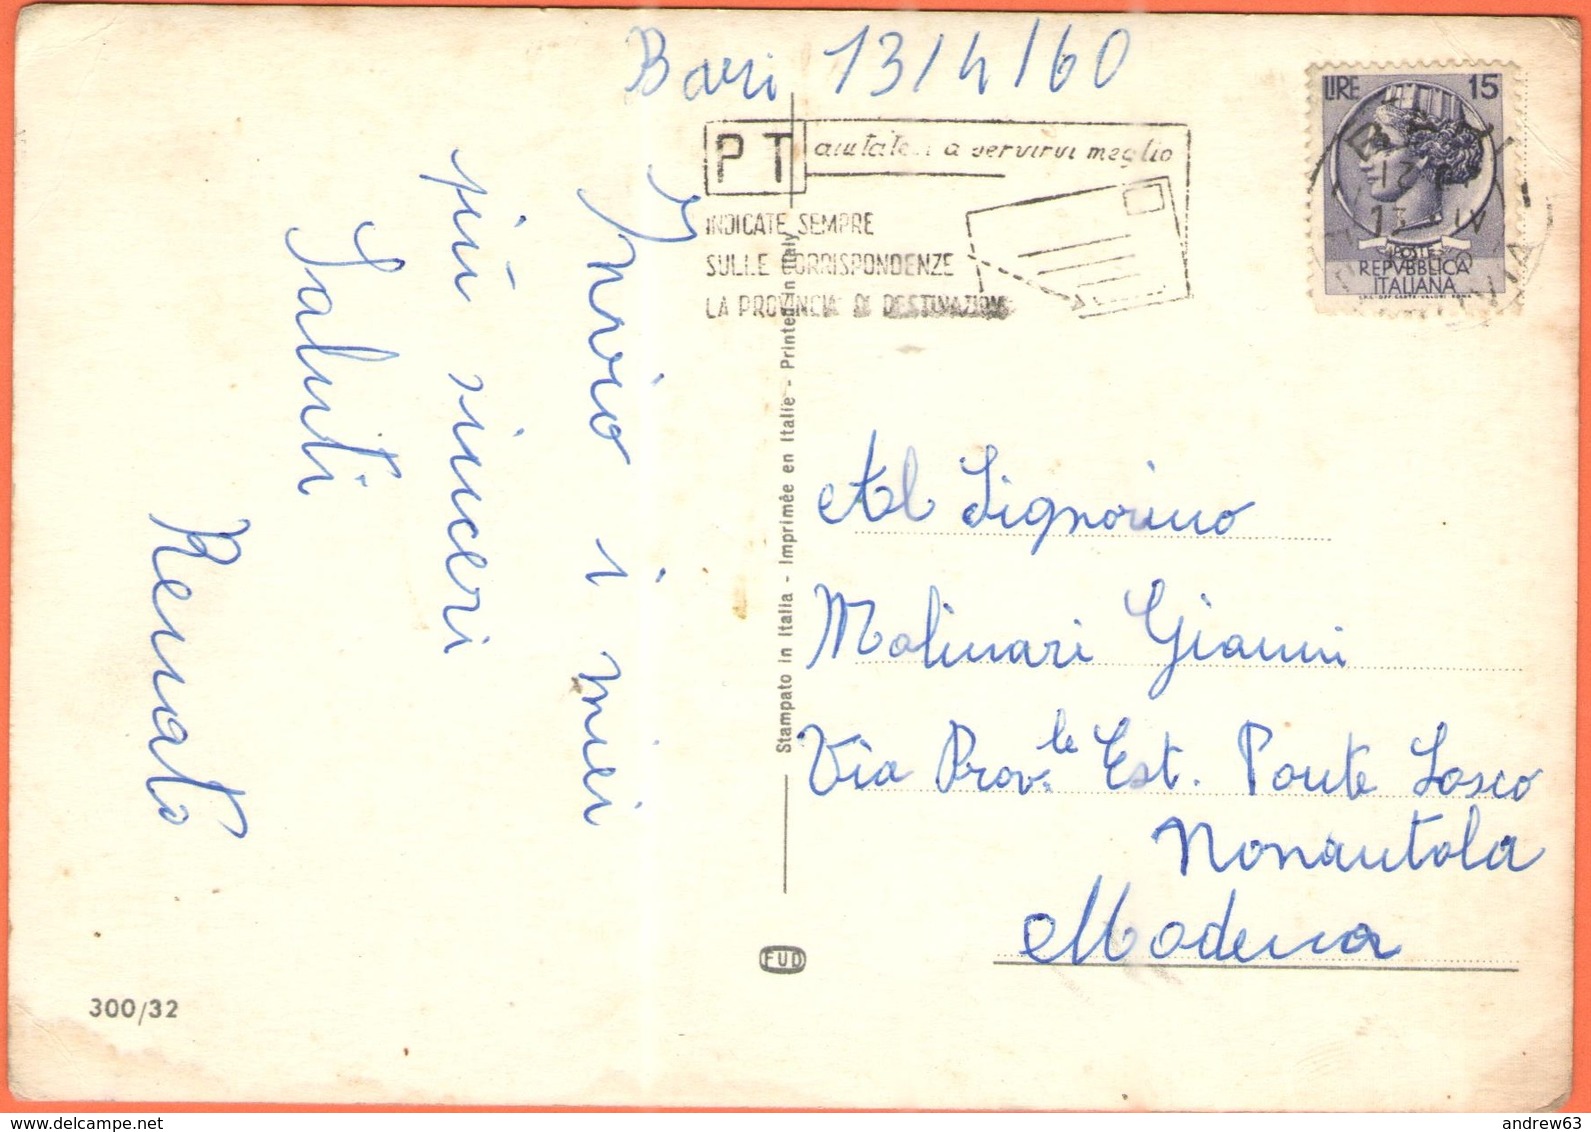 Bari 13/4/60
PT aiutateci a servirvi meglio
INDICATE SEMPRE
SULLE CORRISPONDENZE
LA PROVINCIA DI DESTINAZIONE
LIRE 15
POSTE
REPVBBLICA
ITALIANA
BARI
13 IV
Invio i miei
più sinceri
Saluti
Renato
Stampato in Italia - Imprimée en Italie - Printed in Italy
Al Signorino
Molinari Gianni
Via Prov.le Est. Ponte Losco
Nonantola
Modena
FUD
300/32
andrew63